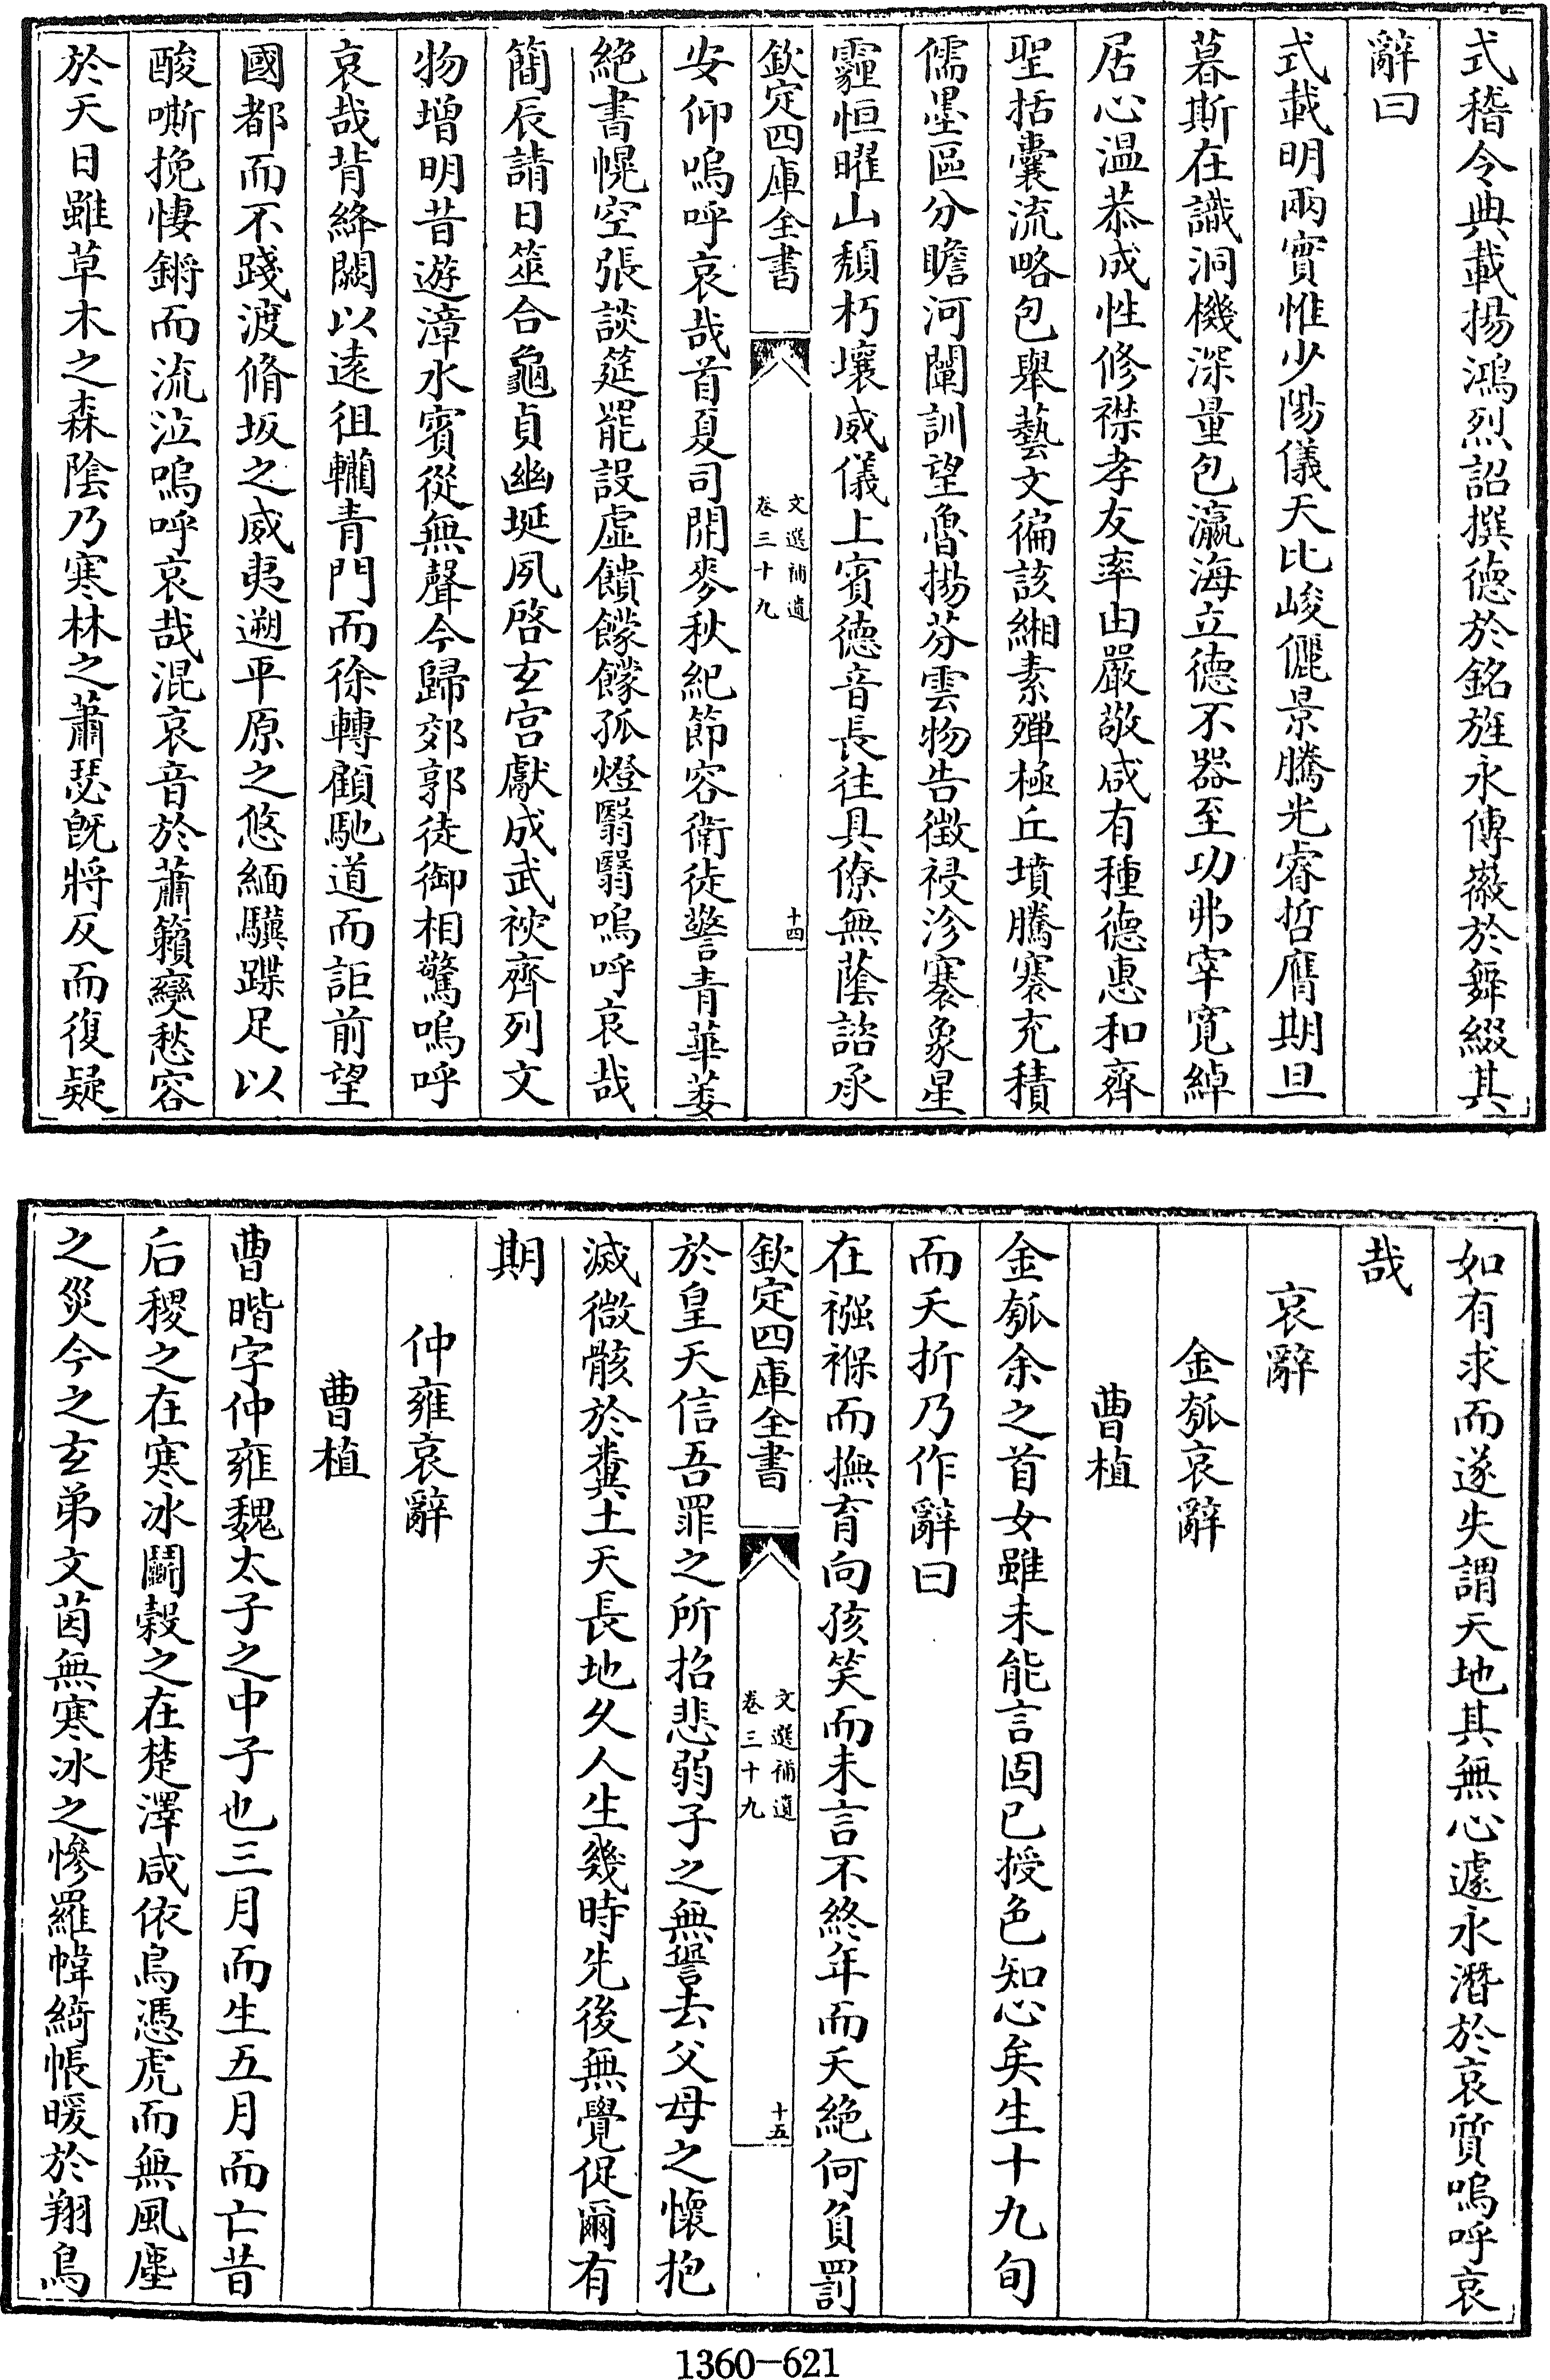 式稽令典載揚鴻烈詔撰徳於銘旌永傳徽於舞綴其
辭曰
式載明兩實惟少陽儀天比峻儷景騰光睿哲膺期旦
暮斯在識洞機深量包瀛海立徳不器至功弗宰寛綽
居心温恭成性修襟孝友率由嚴敬咸有種德惠和齊
聖括囊流略包舉藝文徧該緗素殫極丘墳騰褰充積
儒墨區分瞻河闡訓望魯揚芬雲物告徴祲沴褰象星
霾恒曜山頽朽壤威儀上賓德音長往具僚無蔭諮承
欽定四庫全書
文選補遺
卷三十九
十四
安仰嗚呼哀哉首夏司開麥秋紀節容衛徒警青華菨
絶書幌空張談筵罷設虚饋饛饛孤燈翳翳嗚呼哀哉
簡辰請日筮合龜貞幽埏夙啓玄宫獻成武校齊列文
物增明昔遊漳水賓從無聲今歸郊郭徒御相驚嗚呼
哀哉背絳闕以遠徂轥青門而徐轉顧馳道而詎前望
國都而不踐渡脩坂之威夷遡平原之悠緬驥蹀足以
酸嘶挽悽鏘而流泣嗚呼哀哉混哀音於蕭籟變愁容
於天日雖草木之森陰乃寒林之蕭瑟旣將反而復疑
如有求而遂失謂天地其無心遽永潛於哀質嗚呼哀
哉
哀辭
金瓠哀辭
曹植
金瓠余之首女雖未能言固已授色知心矣生十九旬
而夭折乃作辭曰
在襁褓而撫育向孩笑而未言不終年而夭絶何負罰
欽定四庫全書
文選補遺
卷三十九
十五
於皇天信吾罪之所招悲弱子之無諐去父母之懷抱
滅微骸於糞土天長地久人生幾時先後無覺促爾有
期
仲雍哀辭
曹植
曹喈字仲雍魏太子之中子也三月而生五月而亡昔
后稷之在寒冰鬭榖之在楚澤咸依鳥憑虎而無風塵
之災今之玄弟文茵無寒冰之慘羅幃綺帳暖於翔鳥
1360-621